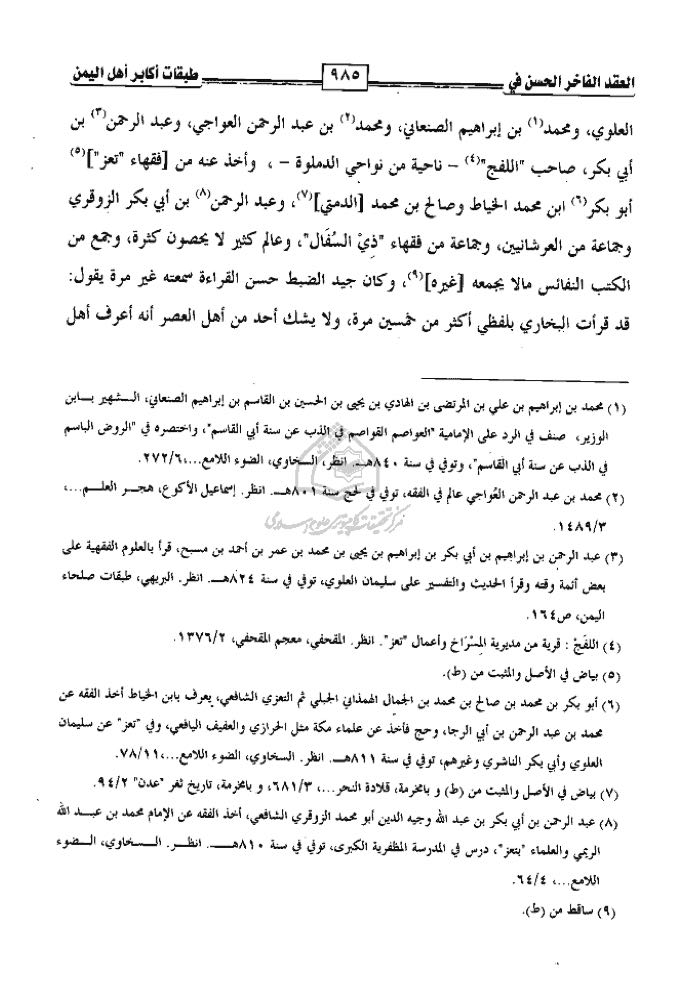 العقد الفاخر الحسن في
٩٨٥
طبقات أكابر أهل اليمن
العلوي، ومحمد(١) بن إبراهيم الصنعاني، ومحمد(٢) بن عبد الرحمن العواجي، وعبد الرحمن(٣) بن
أبي بكر، صاحب "اللفج"(٤) – ناحية من نواحي الدملوة – ، وأخذ عنه من [فقهاء "تعز"](٥)
أبو بكر(٦) ابن محمد الخياط وصالح بن محمد [الدمتي](٧)، وعبد الرحمن(٨) بن أبي بكر الزوقري
وجماعة من العرشانيين، وجماعة من فقهاء "ذيْ السُفَال"، وعالم كثير لا يحصون كثرة، وجمع من
الكتب النفائس مالا يجمعه [غيره](٩)، وكان جيد الضبط حسن القراءة سمعته غير مرة يقول:
قد قرأت البخاري بلفظي أكثر من خمسين مرة، ولا يشك أحد من أهل العصر أنه أعرف أهل
(١) محمد بن إبراهيم بن علي بن المرتضى بن الهادي بن يحيى بن الحسين بن القاسم بن إبراهيم الصنعاني، الـشهير بـابن
الوزير، صنف في الرد على الإمامية "العواصم القواصم في الذب عن سنة أبي القاسم"، واختصره في "الروض الباسم
في الذب عن سنة أبي القاسم"، وتوفي في سنة ٨٤٠هـ. انظر، السخاوي، الضوء اللامع...، ٢٧٢/٦.
(٢) محمد بن عبد الرحمن العُواجي عالم في الفقه، توفي في لحج سنة ٨٠١هـ. انظر. إسماعيل الأكوع، هجـر العلـم...،
١٤٨٩/٣.
(٣) عبد الرحمن بن إبراهيم بن أبي بكر بن إبراهيم بن يحيى بن محمد بن عمر بن أحمد بن مسبح، قرأ بالعلوم الفقهية على
بعض أئمة وقته وقرأ الحديث والتفسير على سليمان العلوي، توفي في سنة ٨٢٤هـ. انظر. البريهي، طبقات صلحاء
اليمن، ص١٦٤.
(٤) اللفَجْ : قرية من مديرية المِسْرَاخ وأعمال "تعز". انظر. المقحفي، معجم المقحفي، ١٣٧٦/٢.
(٥) بياض في الأصل والمثبت من (ط).
(٦) أبو بكر بن محمد بن صالح بن محمد بن الجمال الهمداني الجبلي ثم التعزي الشافعي، يعرف بابن الخياط أخذ الفقه عن
محمد بن عبد الرحمن بن أبي الرجا، وحج فأخذ عن علماء مكة مثل الحرازي والعفيف اليافعي، وفي "تعز" عن سليمان
العلوي وأبي بكر الناشري وغيرهم، توفي في سنة ٨١١هـ. انظر. السخاوي، الضوء اللامع...، ٧٨/١١.
(٧) بياض في الأصل والمثبت من (ط) و بامخرمة، قلادة النحر...، ٦٨١/٣، و بامخرمة، تاريخ ثغر "عدن" ٩٤/٢.
(٨) عبد الرحمن بن أبي بكر بن عبد الله وجيه الدين أبو محمد الزوقري الشافعي، أخذ الفقه عن الإمام محمد بن عبـد الله
الريمي والعلماء "بتعز"، درس في المدرسة المظفرية الكبرى، توفي في سنة ٨١٠هـ. انظـر. الـسخاوي، الـضوء
اللامع...، ٦٤/٤.
(٩) ساقط من (ط).